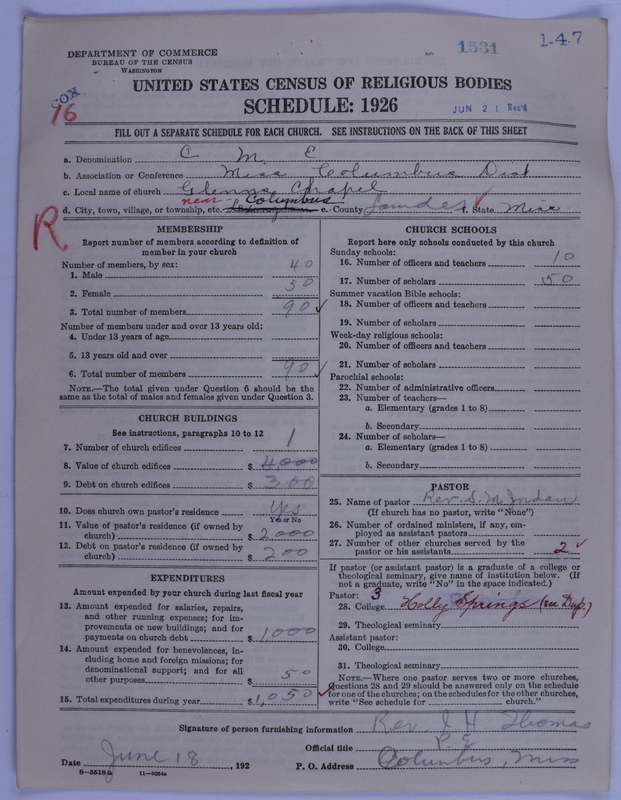 DEPARTMENT OF COMMERCE
BUREAU OF THE CENSUS
WASHINGTON
1531
1-47
CON
16
UNITED STATES CENSUS OF RELIGIOUS BODIES
SCHEDULE: 1926
JUN 21 Rec'd
FILL OUT A SEPARATE SCHEDULE FOR EACH CHURCH. SEE INSTRUCTIONS ON THE BACK OF THIS SHEET
a. Denomination C M E
b. Association or Conference Miss Columbus Dist
c. Local name of church Glenns Chapel
near Columbus
d. City, town, village, or township, etc. e. County Lowndes f. State Miss
R
MEMBERSHIP
Report number of members according to definition of member in your church
Number of members, by sex:
1. Male 40
2. Female 50
3. Total number of members 90
Number of members under and over 13 years old:
4. Under 13 years of age
5. 13 years old and over
6. Total number of members 90
NOTE.—The total given under Question 6 should be the
same as the total of males and females given under Question 3.
CHURCH BUILDINGS
See instructions, paragraphs 10 to 12
7. Number of church edifices 1
8. Value of church edifices $ 4000
9. Debt on church edifices $ 300
10. Does church own pastor's residence Yes
Yes or No
11. Value of pastor's residence (if owned by
church) $ 2000
12. Debt on pastor's residence (if owned by
church) $ 200
EXPENDITURES
Amount expended by your church during last fiscal year
13. Amount expended for salaries, repairs,
and other running expenses; for im-
provements or new buildings; and for
payments on church debt $ 1000
14. Amount expended for benevolences, in-
cluding home and foreign missions; for
denominational support; and for all
other purposes $ 50
15. Total expenditures during year $ 1,050
CHURCH SCHOOLS
Report here only schools conducted by this church
Sunday schools:
16. Number of officers and teachers 10
17. Number of scholars 50
Summer vacation Bible schools:
18. Number of officers and teachers
19. Number of scholars
Week-day religious schools:
20. Number of officers and teachers
21. Number of scholars
Parochial schools:
22. Number of administrative officers
23. Number of teachers—
a. Elementary (grades 1 to 8)
b. Secondary
24. Number of scholars—
a. Elementary (grades 1 to 8)
b. Secondary
PASTOR
25. Name of pastor Rev. S. M. Jordan
(If church has no pastor, write "None")
26. Number of ordained ministers, if any, em-
ployed as assistant pastors
27. Number of other churches served by the
pastor or his assistants 2
If pastor (or assistant pastor) is a graduate of a college or
theological seminary, give name of institution below. (If
not a graduate, write "No" in the space indicated.)
Pastor: 3
28. College Holly Springs (see Dup.)
29. Theological seminary
Assistant pastor:
30. College
31. Theological seminary
NOTE.—Where one pastor serves two or more churches,
Questions 28 and 29 should be answered only on the schedule
for one of the churches; on the schedules for the other churches,
write "See schedule for church."
Signature of person furnishing information Rev J H Thomas
Official title P E
Date June 18, 192 P. O. Address Columbus, Miss
6—5518a 11—9034a